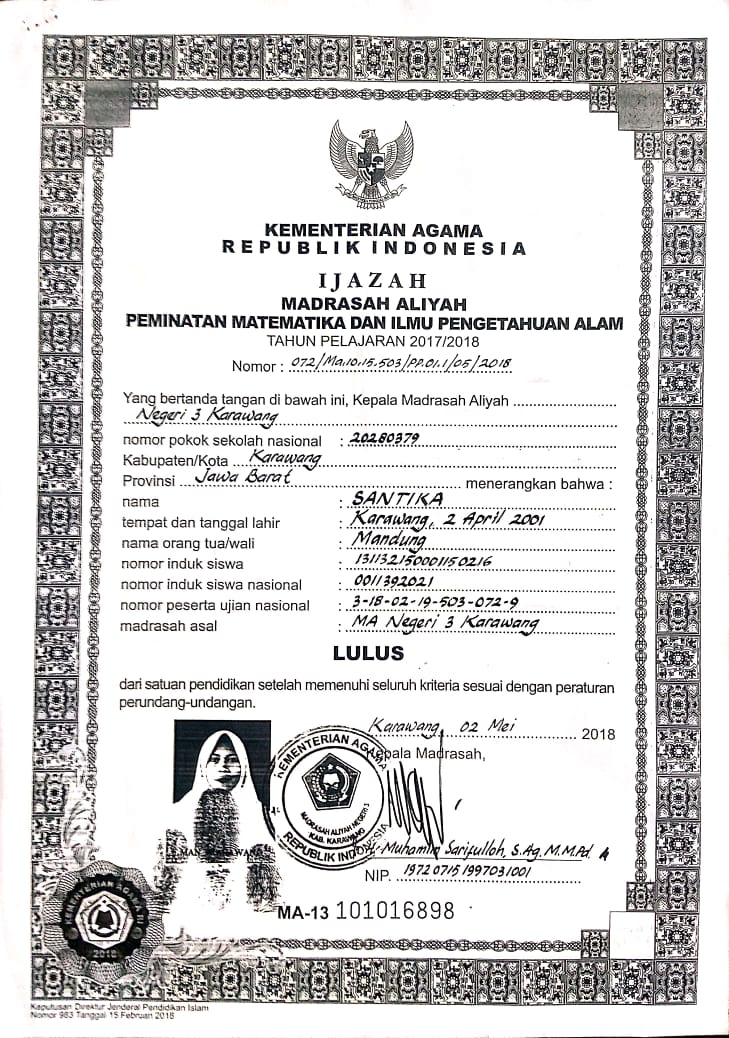 KEMENTERIAN AGAMA
REPUBLIK INDONESIA
IJAZAH
MADRASAH ALIYAH
PEMINATAN MATEMATIKA DAN ILMU PENGETAHUAN ALAM
TAHUN PELAJARAN 2017/2018
Nomor : 072/Ma.10.15.503/PP.01.1/05/2018
Yang bertanda tangan di bawah ini, Kepala Madrasah Aliyah
Negeri 3 Karawang
nomor pokok sekolah nasional : 20280379
Kabupaten/Kota Karawang
Provinsi Jawa Barat menerangkan bahwa :
nama : SANTIKA
tempat dan tanggal lahir : Karawang, 2 April 2001
nama orang tua/wali : Mandung
nomor induk siswa : 131132150001150216
nomor induk siswa nasional : 0011392021
nomor peserta ujian nasional : 3-18-02-19-503-072-9
madrasah asal : MA Negeri 3 Karawang
LULUS
dari satuan pendidikan setelah memenuhi seluruh kriteria sesuai dengan peraturan
perundang-undangan.
Karawang, 02 Mei 2018
Kepala Madrasah,
KEMENTERIAN AGAMA
MADRASAH ALIYAH NEGERI 3
KAB. KARAWANG
REPUBLIK INDONESIA
Muhamin Sarifulloh, S.Ag. M.M.Pd
NIP. 197207151997031001
MA-13 101016898
KEMENTERIAN AGAMA RI
2018
Keputusan Direktur Jenderal Pendidikan Islam
Nomor 983 Tanggal 15 Februari 2018